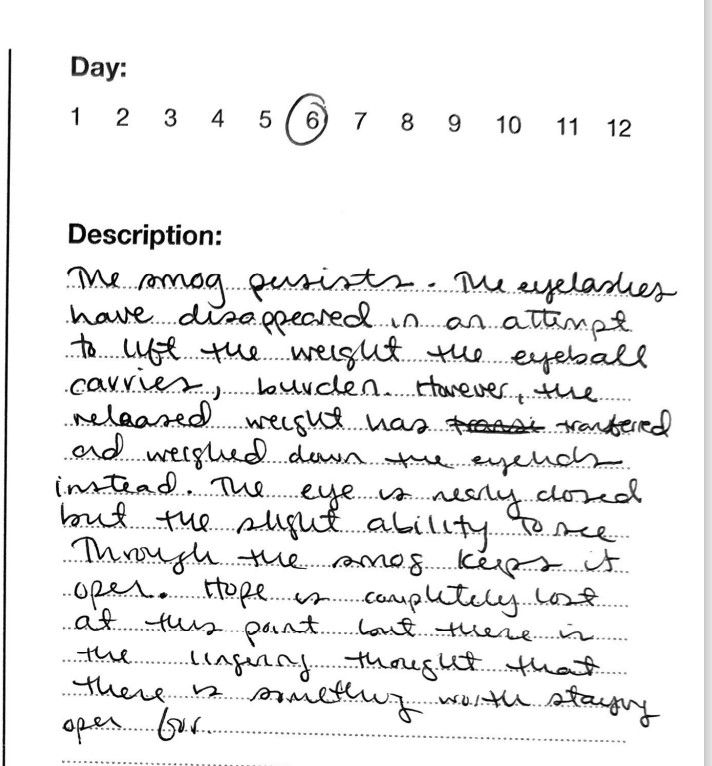 Day:
1 2 3 4 5 6 7 8 9 10 11 12
Description:
The smog persists. The eyelashes
have disappeared in an attempt
to lift the weight the eyeball
carries, burden. However, the
released weight has transfered
and weighed down the eyelids
instead. The eye is nearly closed
but the slight ability to see
Through the smog keeps it
open. Hope is completely lost
at this point but there is
the lingering thought that
there is something worth staying
open for.